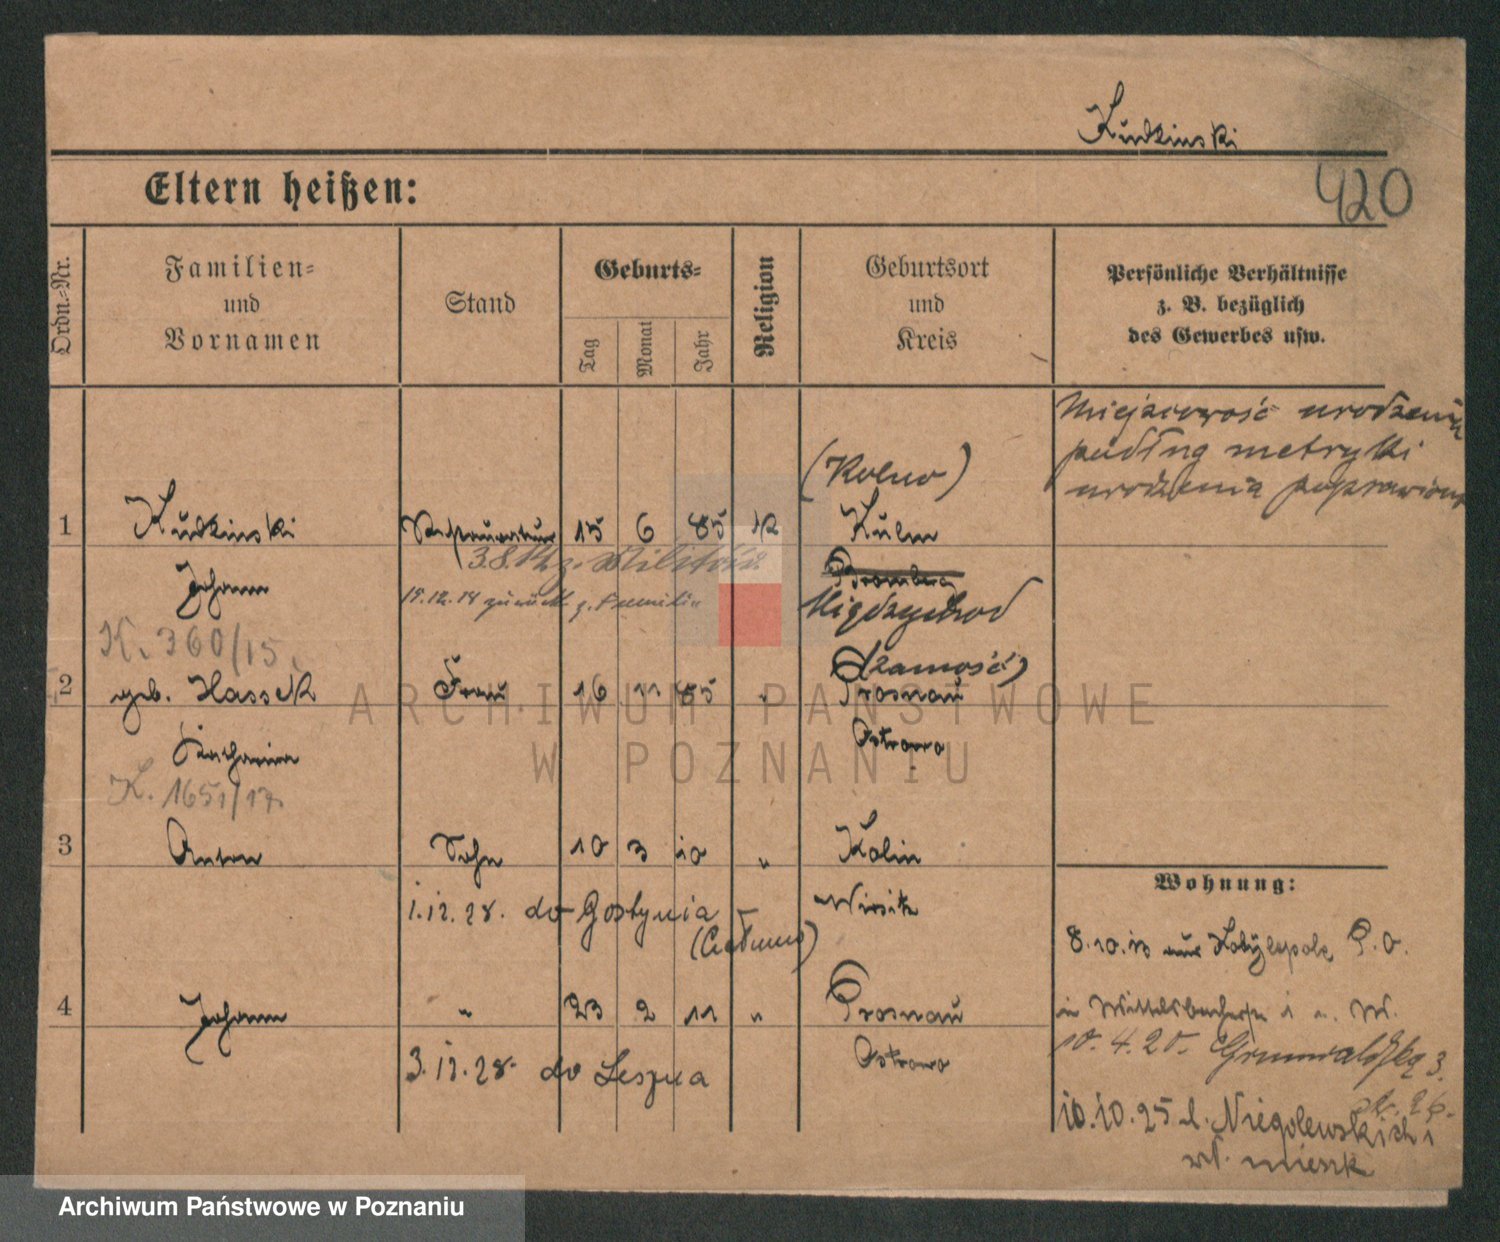 Kudzinski
420
Eltern heißen:
Ordn.-Nr.
Familien- und Vornamen
Stand
Geburts-
Tag
Monat
Jahr
Religion
Geburtsort und Kreis
Persönliche Verhältnisse z. B. bezüglich des Gewerbes usw.
Miejscowość urodzenia
podług metryki
urodzenia poprawiona
(Kolno)
1 Kudzinski 15 6 85 K Kulm
3.8. z. Militär Bromberg
Johann
19.12.14 zurück z. Familie Międzychod
K. 360/15.
(Zamość)
2 geb. Hassek Frau 16 11 85 " Prosnau
Katharina Ostrowo
K. 1651/17
3 Anton Sohn 10 3 10 " Kolin
Wirsitz
1.12.28. do Gostynia
4 Johann " 23 2 11 " Prosnau
Ostrowo
3.12.28. do Leszna
Wohnung:
8.10.13 aus Kobylepole P. O.
in Wittelsbacherstr 1 W.
10.4.20. Grunwaldzka 3.
26.
10.10.25 Niegolewskich 1
wł. mieszk
ARCHIWUM PAŃSTWOWE
W POZNANIU
Archiwum Państwowe w Poznaniu